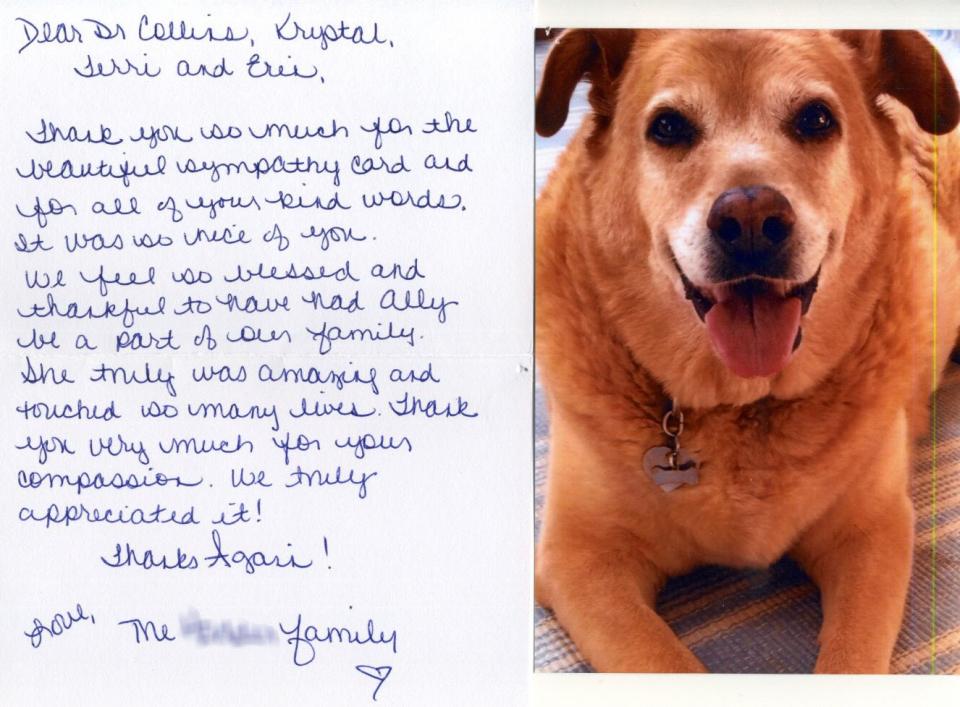 Dear Dr Collins, Krystal,
Terri and Eric,
Thank you so much for the
beautiful sympathy card and
for all of your kind words.
It was so nice of you.
We feel so blessed and
thankful to have had Ally
be a part of our family.
She truly was amazing and
touched so many lives. Thank
you very much for your
compassion. We truly
appreciated it!
Thanks Again!
Love, The family